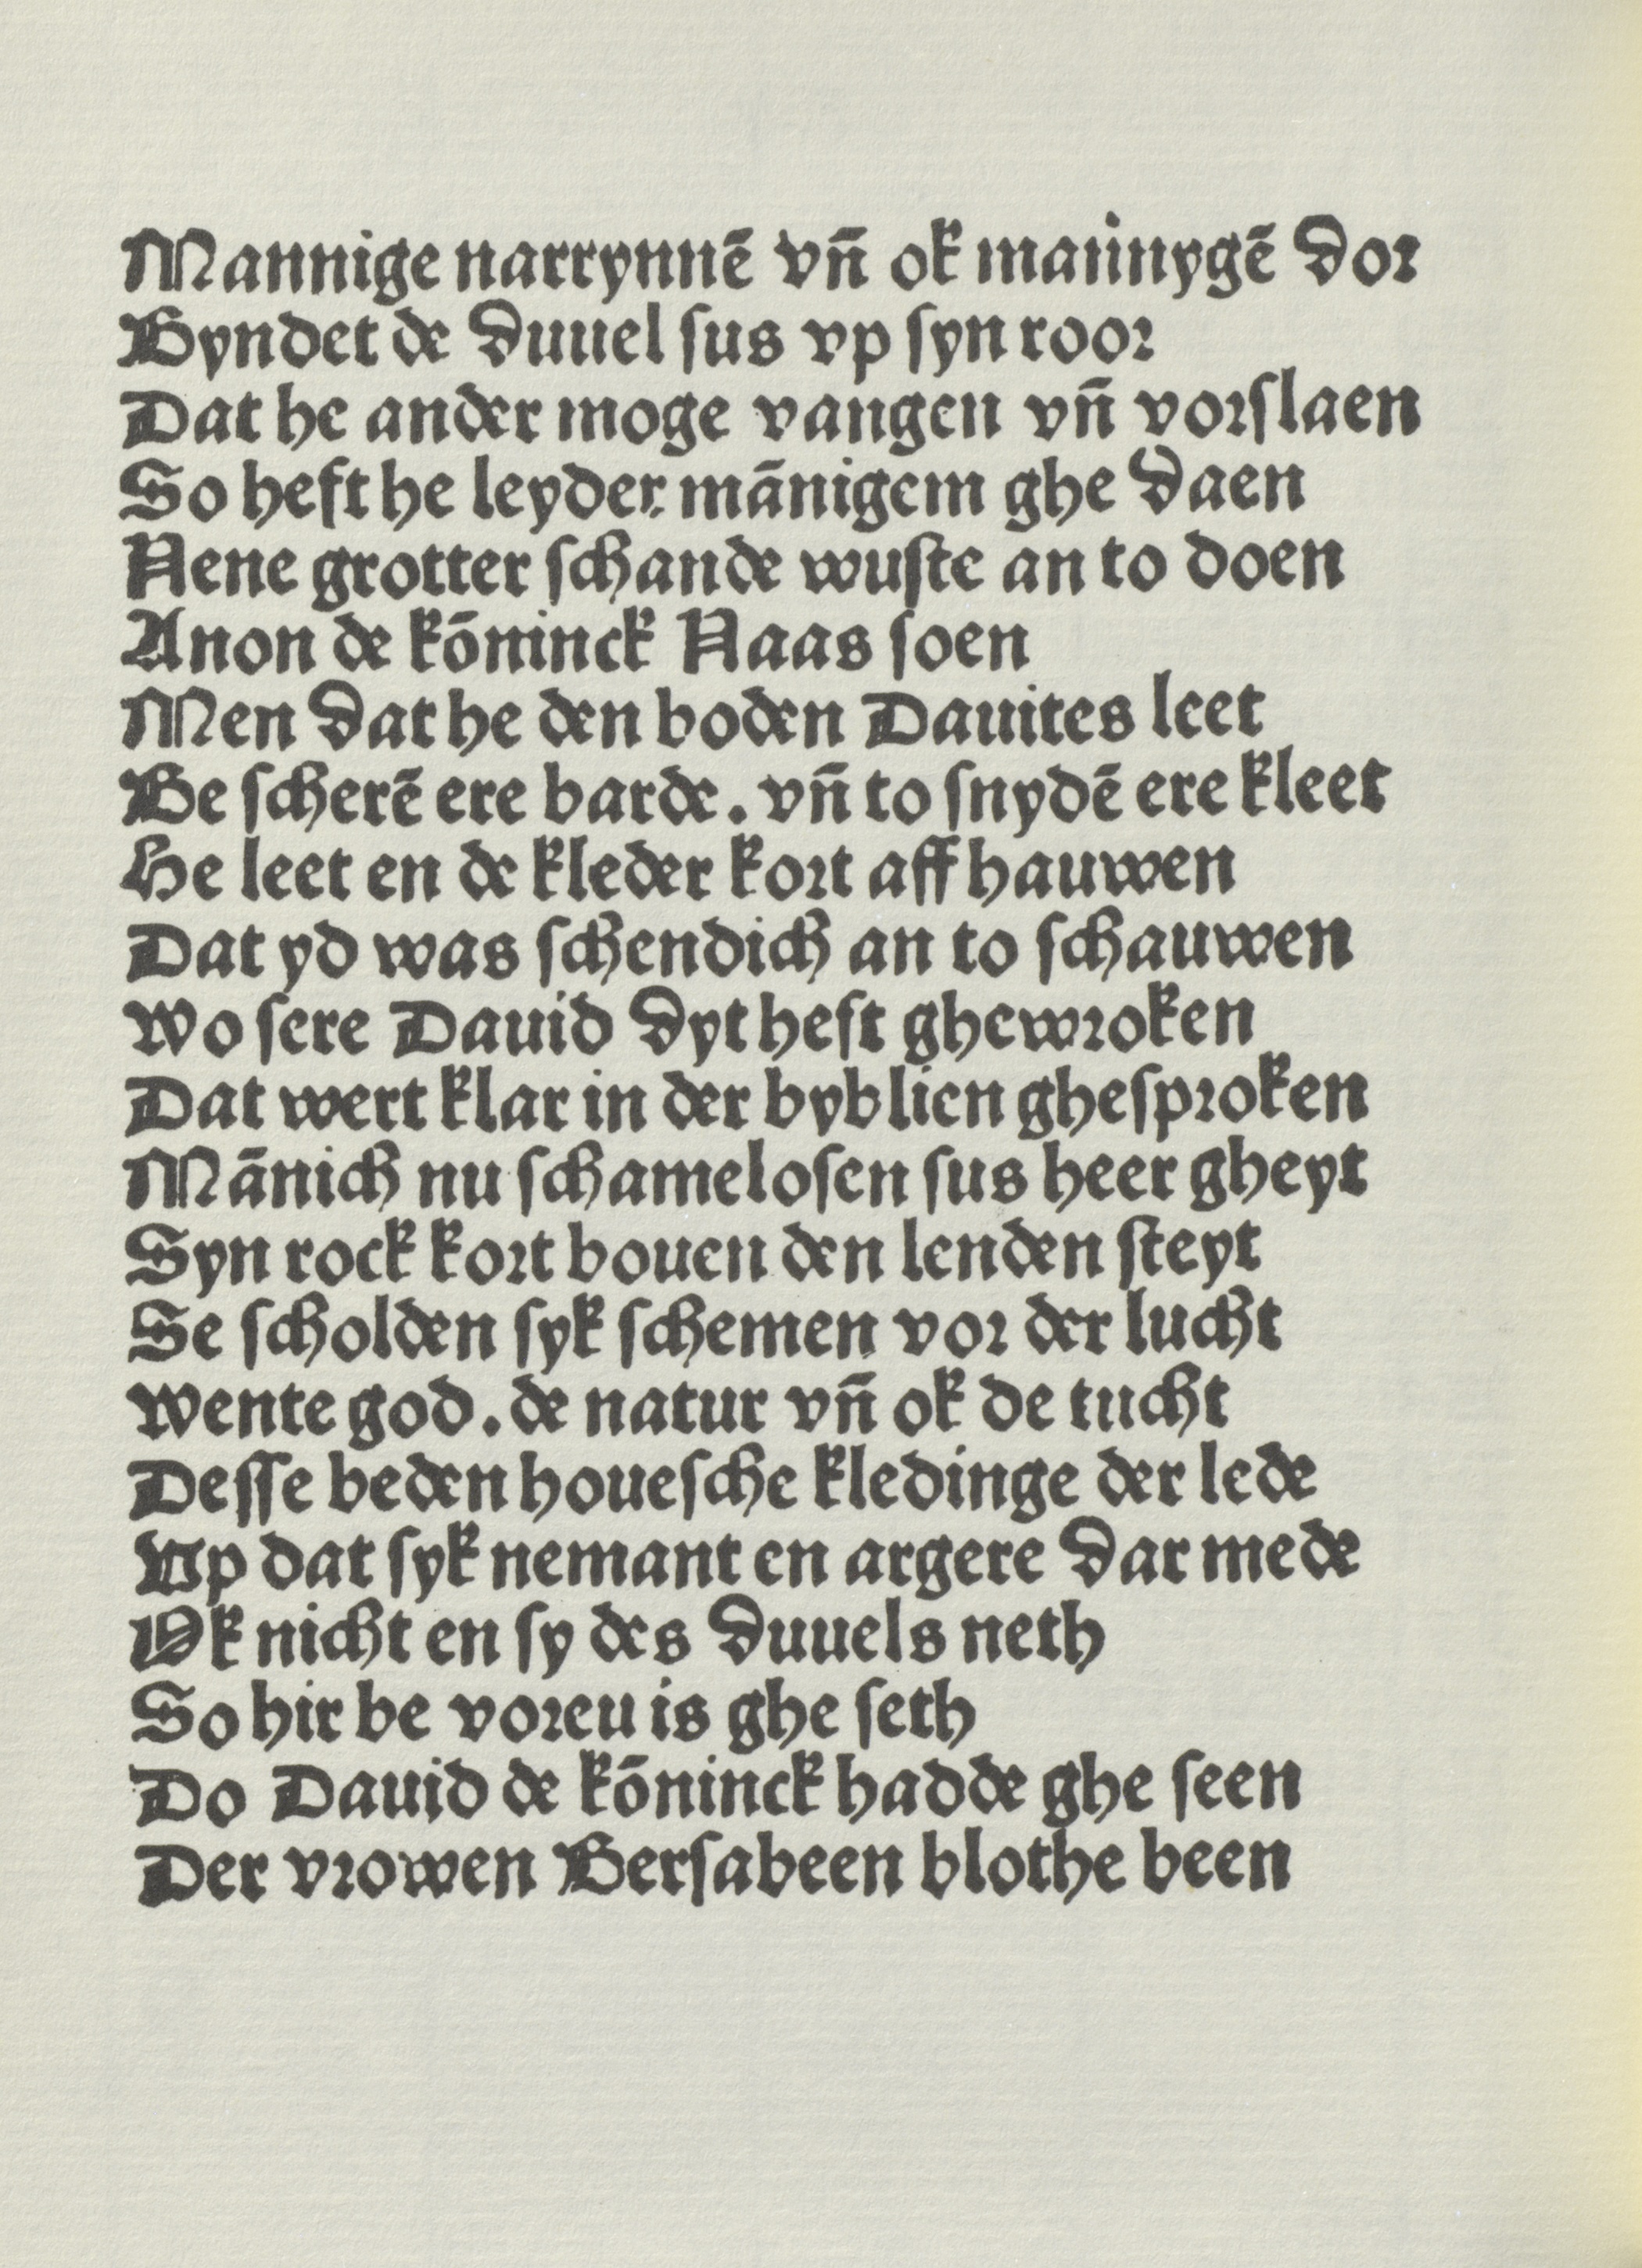 Mannige narrynnē vn̄ ok mannygē dor
Byndet de duuel sus vp syn roor
Dat he ander moge vangen vn̄ vorslaen
So heft he leyder mānigem ghe daen
Nene grotter schande wuste an to doen
Anon de kōninck Naas soen
Men dat he den boden Dauites leet
Be scherē ere barde. vn̄ to snydē ere kleet
He leet en de kleder kort aff hauwen
Dat yd was schendich an to schauwen
Wo sere Dauid dyt heft ghewroken
Dat wert klar in der byblien ghesproken
Mānich nu schamelosen sus heer gheyt
Syn rock kort bouen den lenden steyt
Se scholden syk schemen vor der lucht
Wente god. de natur vn̄ ok de tucht
Desse beden houesche kledinge der lede
Vp dat syk nemant en argere dar mede
Ok nicht en sy des duuels neth
So hir be voreu is ghe seth
Do Dauid de kōninck hadde ghe seen
Der vrowen Bersabeen blothe been